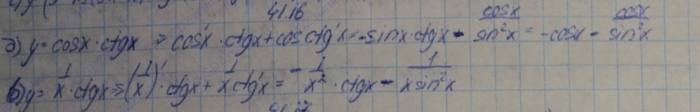 41.16
д) y = cosx · ctgx ⇒ cos'x · ctgx + cos ctg'x = -sinx · ctgx - cosx/sin²x = -cosx - cosx/sin²x
б) y = 1/x · ctgx ⇒ (1/x)' · ctgx + 1/x ctg'x = -1/x² · ctgx - 1/(x sin²x)